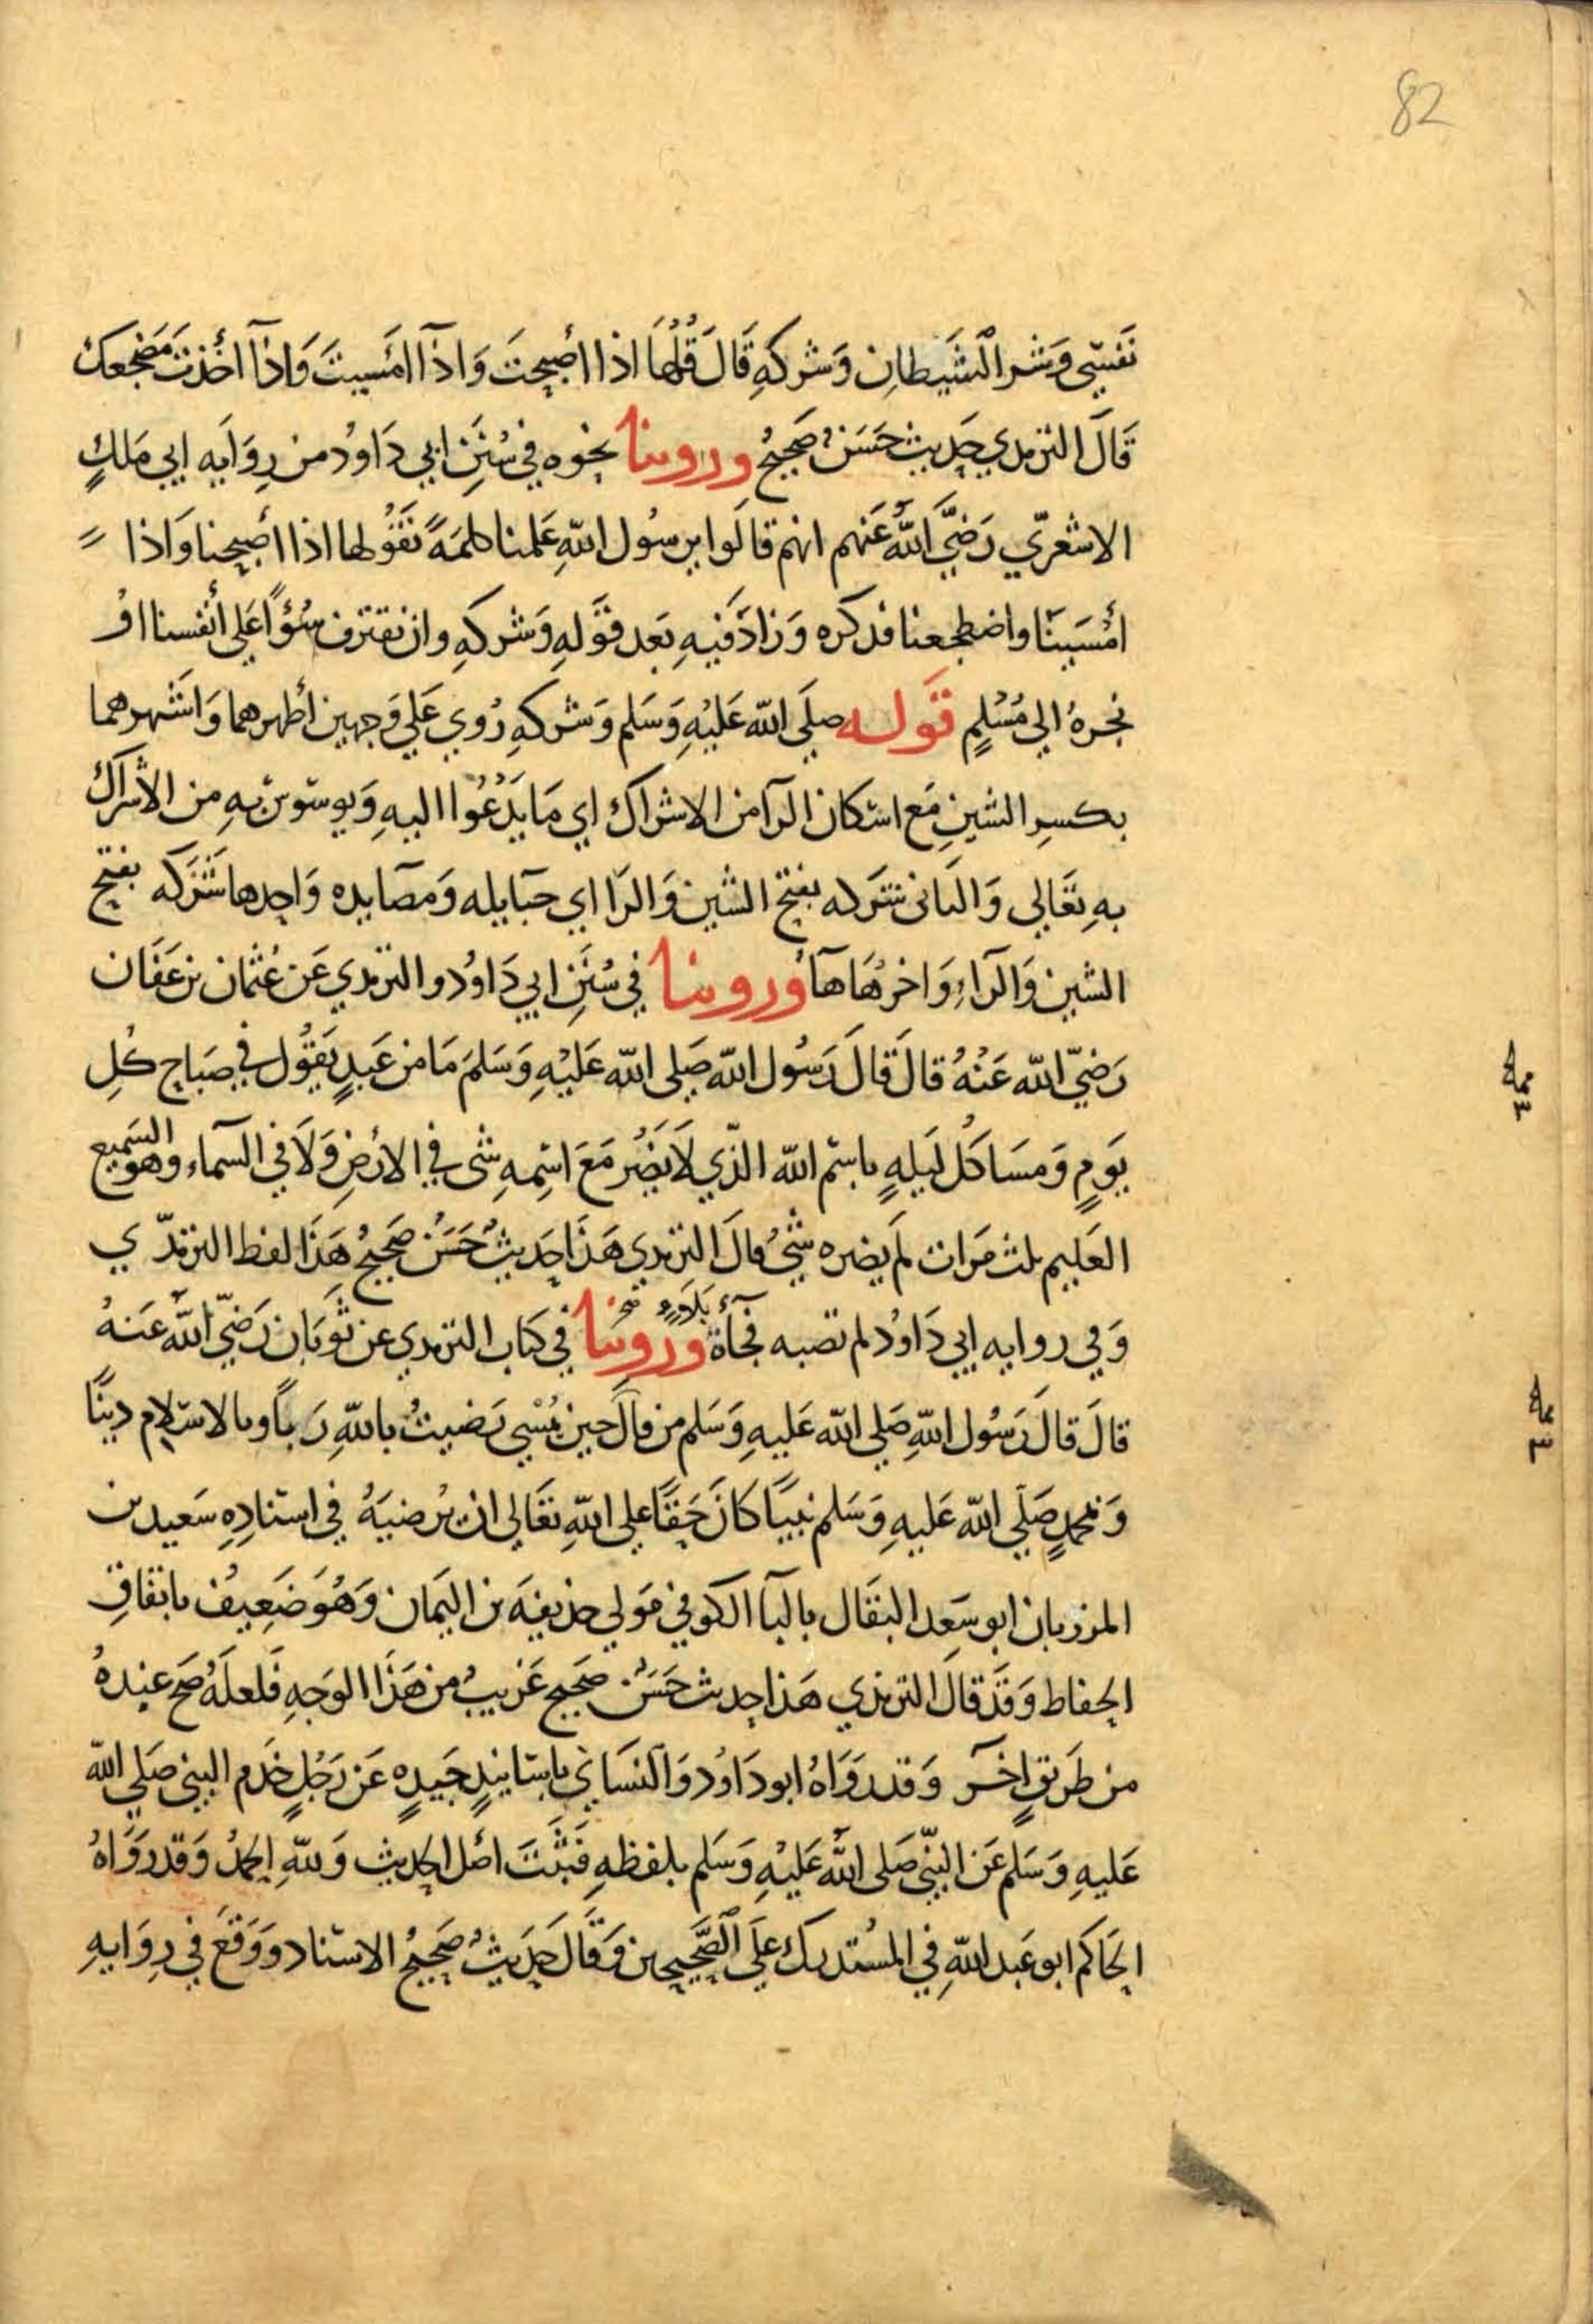 82
نَفسِي وَشر الشَيطانِ وَشركهِ قَالَ قُلهَا اذا اصبحتَ وَاذا امسَيتَ وَاذا اخذتَ مَضجعك
قَالَ الترمدي حَديث حَسَنٌ صَحيحٌ وروينا نحوه في سُنَنِ ابي دَاودُ من رِوَايه ابي مَلكٍ
الاشعَريّ رَضيَ اللهُ عَنهم انهم قالَوا يرسُول اللهِ عَلمنا كلمَةً نقَوُلها اذا اصبحنا وَاذا
امْسَينَا واضطجعنا فدكره وَزادَ فيهِ بَعد قوَلهِ وَشركهِ وان نقترف سُوًا عَلى انفسنا اوْ
نجرهُ الي مُسْلمٍ قَوله صلي الله عَليْهِ وَسَلم وَشركهِ رُوي عَلي وَجهين اظهرهما وَاشهرهما
بكسرِ الشينِ مَع اسكان الرآ من الاشراك اي مَا يَدْعُوا اليهِ وَيوسوس بهِ من الاشراك
بهِ تعَالي وَالثانى شَرَكه بفتح الشين وَالرا اي حبَايله وَمصَايده وَاحدها شَرَكه بفتح
الشين وَالراء وَاخرهَا هَآءٌ وروينا في سُنَنِ ابي دَاودُ والترمدي عَن عُثمان بن عَفَان
رَضيّ الله عَنْهُ قالَ قالَ رَسُول الله صَلي الله عَليْهِ وَسَلمَ مَا من عَبدٍ يَقوُل في صَباح كُلِ
يَومٍ وَمسَا كُل لَيلهٍ باسْم الله الذّي لاَ يَضُر مَعَ اسِمهِ شى في الارضِ وَلاَ في السَماء وهو السَميع
العَليم ثلث مَرات لم يضره شَيٌ قالَ الترمدي هَذا حَديثٌ حَسَنٌ صَحيحٌ هَذَا لفظ الترمدّي
وَفي روايه ابي دَاودُ لم تصبه فجآءَة بَلاءٍ وروينا في كتاب الترمدي عن ثَوبَان رَضيّ اللهُ عَنهُ
قالَ قالَ رَسُول اللهِ صَلي الله عَليهِ وَسَلم من قالَ حين يمُسْي رَضيتُ باللهِ رَباً وبالاسْلام دينًا
وَمحمدٍ صَلَي الله عَليهِ وَسَلم نبيًا كانَ حَقًا علي اللهِ تعَالي ان يُرضيَهُ في اسنادهِ سَعيد بن
المرزبان ابو سَعِد البقَال بالبآ الكوفي مَولي حذيفهَ بن اليَمان وَهُوَ ضَعِيفُ باتفاقِ
الحفاظ وَقَد قالَ الترمذي هَذا حديث حَسَنٌ صَحيح غَريبُ من هَذَا الوَجهِ فَلعلَهُ صَح عندهُ
من طَريقٍ اخَر وَقد روَاهُ ابو دَاوُد وَالنسَاي باسَانيدٍ جَيدهٍ عَن رَجُلٍ خَدم النبي صَلي الله
عَليهِ وَسَلم عَن النبّي صَلي اللهُ عَليْهِ وَسَلم بلفظهِ فَثبَتَ اصْل الحديث وَللهِ الحمدُ وَقد روَاهُ
الحَاكم ابو عَبد اللهِ في المسُتدرك عَلَى الصَّحيحين وَقَالَ حَدَيثُ صَحيحُ الاسناد ووَقَعَ في رِوَايهِ